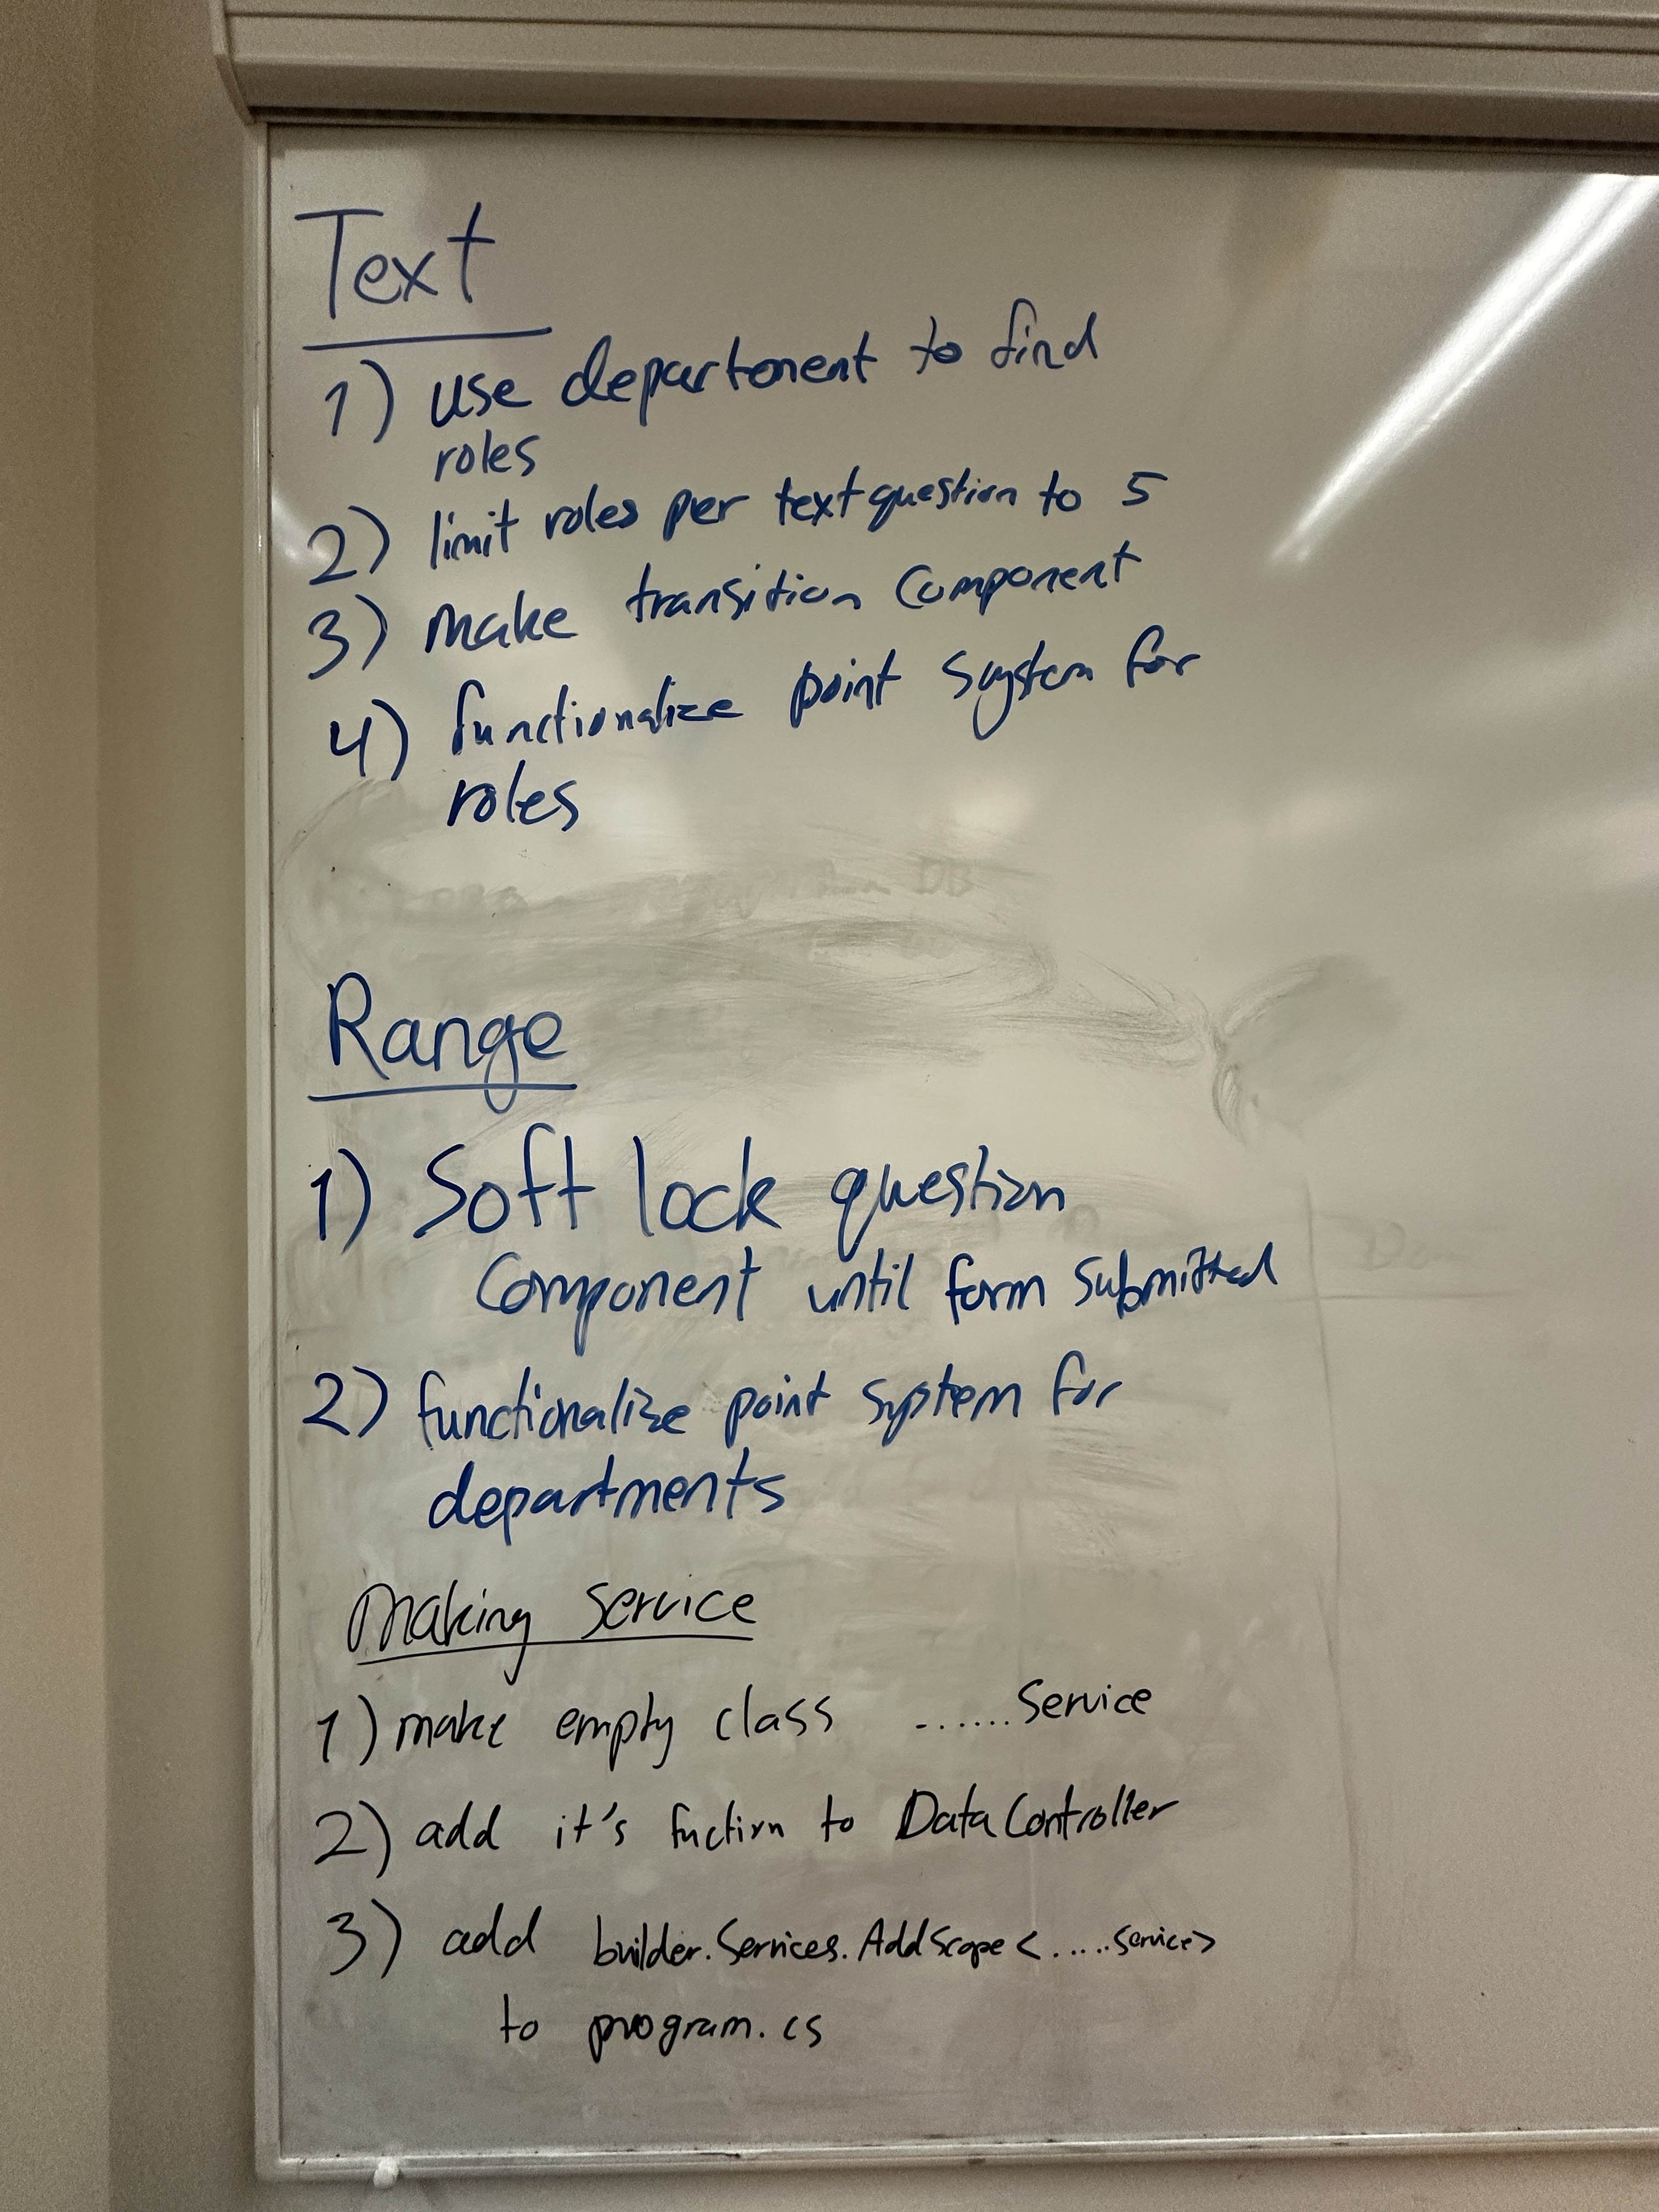 Text
1) use department to find
roles
2) limit roles per text question to 5
3) make transition component
4) functionalize point system for
roles
DB
Range
1) Soft lock question
Component until form submitted
2) functionalize point system for
departments
Making Service
1) make empty class ......Service
2) add it's fuction to DataController
3) add builder.Services.AddScope<.....service>
to program.cs